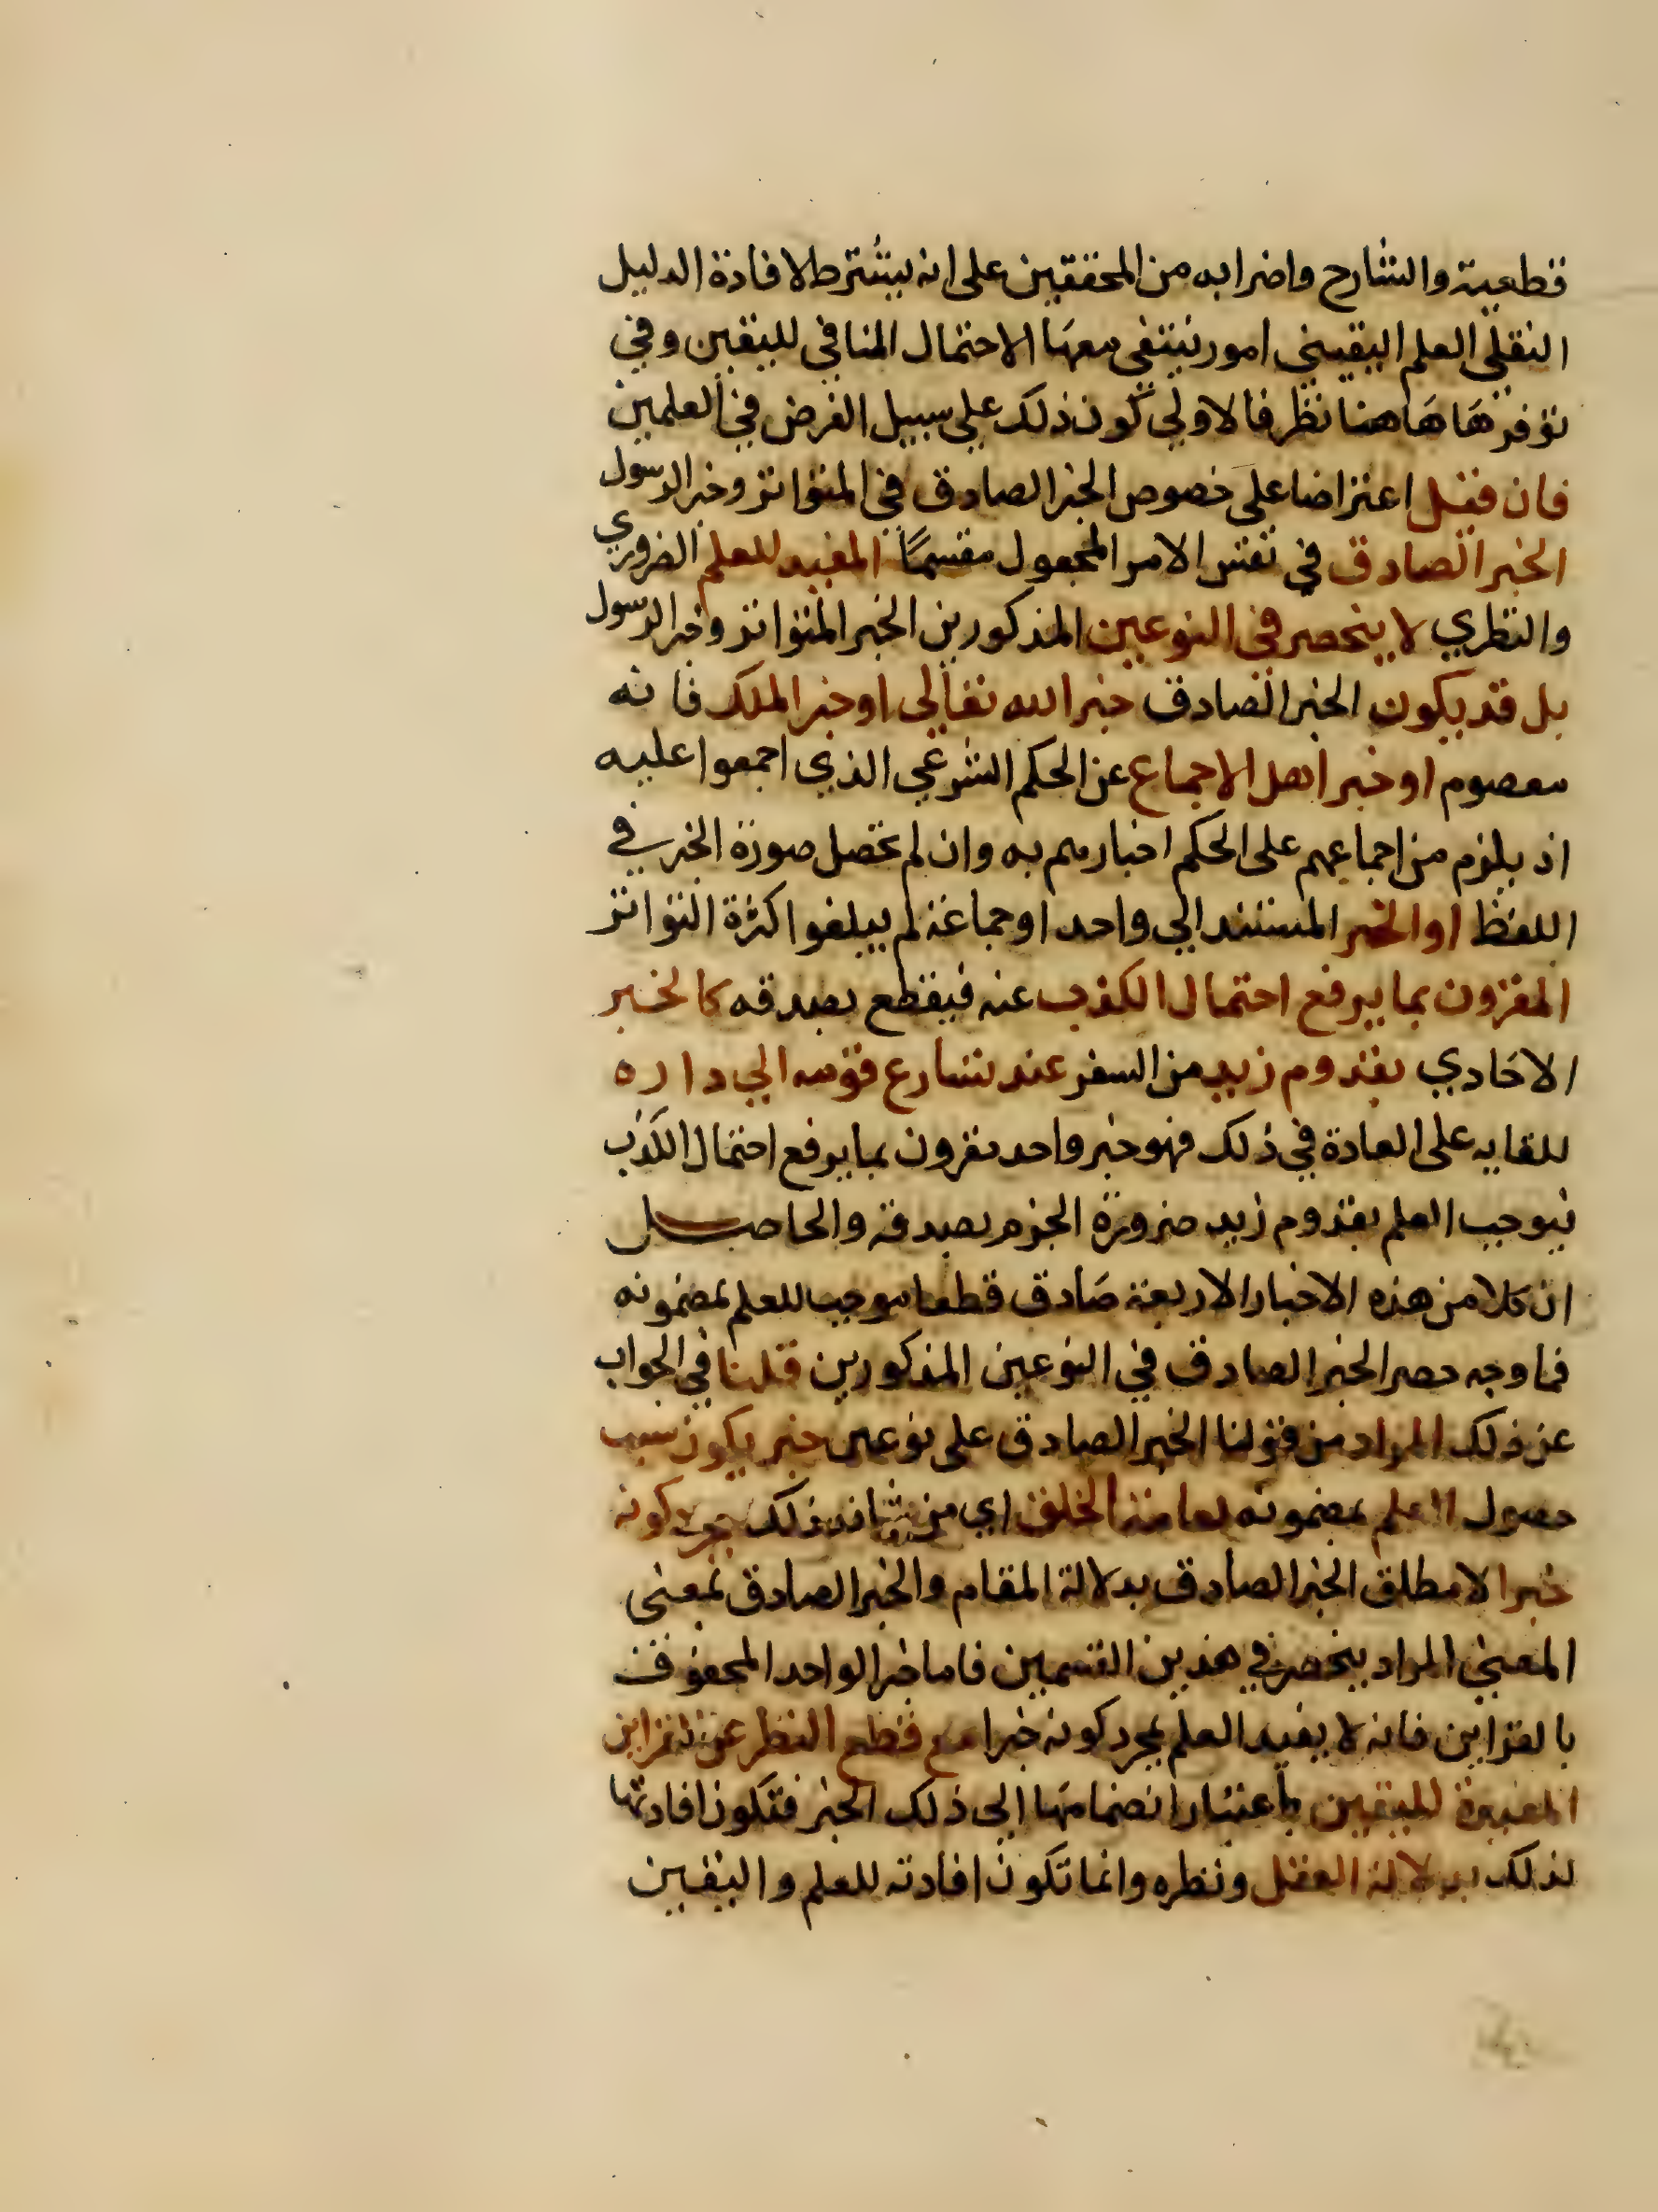 قطعية والشارح واضرابه من المحققين على انه يشترط لافادة الدليل
النقلي العلم اليقيني امور ينتفي معها الاحتمال المنافي لليقين وفي
توفرها هاهنا نظر فالاولى كون ذلك على سبيل الفرض في العلمين
فان قيل اعتراضا على خصوص الخبر الصادق في المتواتر وخبر الرسول
الخبر الصادق في نفس الامر المجعول مقسمًا المفيد للعلم الضروري
والنظري لا ينحصر في النوعين المذكورين الخبر المتواتر وخبر الرسول
بل قد يكون الخبر الصادق خبر الله تعالى او خبر الملك فانه
معصوم او خبر اهل الاجماع عن الحكم الشرعي الذي اجمعوا عليه
اذ يلزم من اجماعهم على الحكم اخبارهم به وان لم تحصل صورة الخبر في
اللفظ او الخبر المستند الي واحد او جماعة لم يبلغوا كثرة التواتر
المقرون بما يرفع احتمال الكذب عنه فيقطع بصدقه كالخبر
الاحادي بقدوم زيد من السفر عند تسارع قومه الي داره
للقايه على العادة في ذلك فهو خبر واحد مقرون بما يرفع احتمال الكذب
فيوجب العلم بقدوم زيد ضرورة الجزم بصدقه والحاصل
ان كلا من هذه الاخبار الاربعة صادق قطعا موجب للعلم بمضمونه
فما وجه حصر الخبر الصادق في النوعين المذكورين قلنا في الجواب
عن ذلك المراد من قولنا الخبر الصادق على نوعين خبر يكون سبب
حصول العلم بمضمونه لعامة الخلق اي من شانه ذلك بمجرد كونه
خبرا لا مطلق الخبر الصادق بدلالة المقام والخبر الصادق بمعنى
المعنى المراد ينحصر في هذين القسمين فاما خبر الواحد المحفوف
بالقراين فانه لا يفيد العلم بمجرد كونه خبرا مع قطع النظر عن القراين
المفيدة لليقين باعتبار انضمامها الى ذلك الخبر فتكون افادتها
لذلك بدلالة العقل ونظره وانما تكون افادته للعلم واليقين